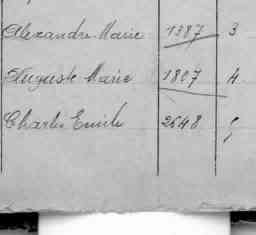 Alexandre Marie 1387 3
Auguste Marie 1807 4
Charles Emile 2648 5